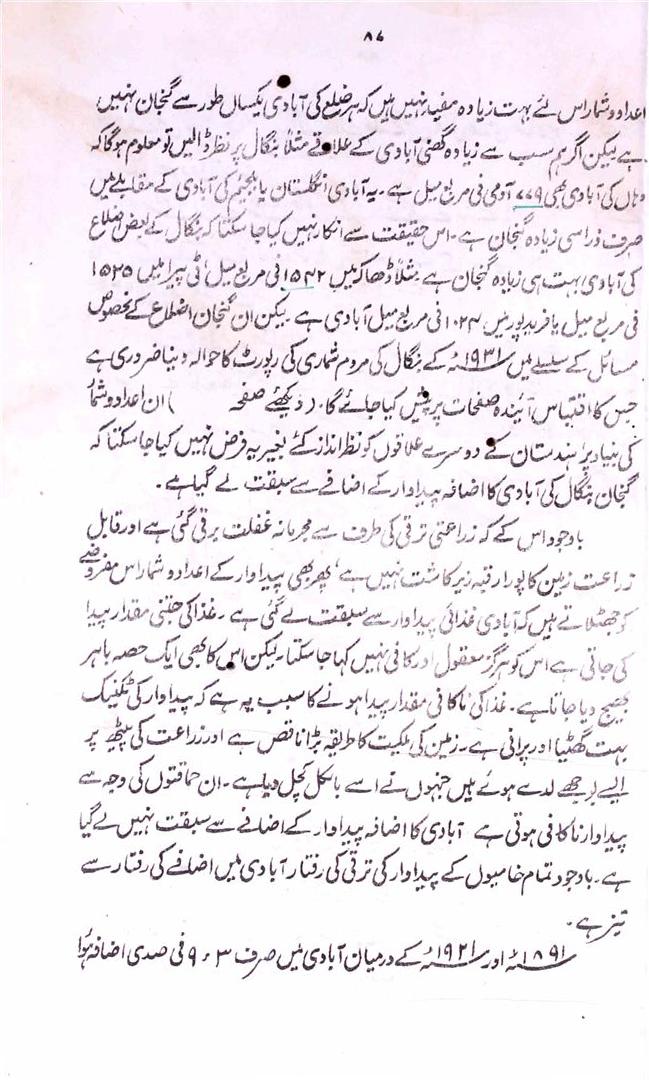 ۸۷
اعداد و شمار اس لئے بہت زیادہ مفید نہیں ہیں کہ ہر ضلع کی آبادی یکساں طور سے گنجان نہیں
ہے لیکن اگر ہم سب سے زیادہ گھنی آبادی کے علاقے مثلاً بنگال پر نظر ڈالیں تو معلوم ہوگا کہ
وہاں کی آبادی بھی ۷۷۹ آدمی فی مربع میل ہے۔ یہ آبادی انگلستان یا بلجیم کی آبادی کے مقابلے میں
صرف ذرا سی زیادہ گنجان ہے۔ اس حقیقت سے انکار نہیں کیا جا سکتا کہ بنگال کے بعض اضلاع
کی آبادی بہت ہی زیادہ گنجان ہے مثلاً ڈھاکہ میں ۱۵۴۲ فی مربع میل ٹی پیرا میں ۱۵۲۵
فی مربع میل یا فرید پور میں ۱۰۲۴ فی مربع میل آبادی ہے۔ لیکن ان گنجان اضلاع کے مخصوص
مسائل کے سلسلے میں ۱۹۳۱ء کے بنگال کی مردم شماری کی رپورٹ کا حوالہ دینا ضروری ہے
جس کا اقتباس آئندہ صفحات پر پیش کیا جائے گا۔ (دیکھئے صفحہ ) ان اعداد و شمار
کی بنیاد پر ہندستان کے دوسرے علاقوں کو نظر انداز کئے بغیر یہ فرض نہیں کیا جا سکتا کہ
گنجان بنگال کی آبادی کا اضافہ پیداوار کے اضافے سے سبقت لے گیا ہے۔
باوجود اس کے کہ زراعتی ترقی کی طرف سے مجرمانہ غفلت برتی گئی ہے اور قابل
زراعت زمین کا پورا رقبہ زیر کاشت نہیں ہے، پھر بھی پیداوار کے اعداد و شمار اس مفروضے
کو جھٹلاتے ہیں کہ آبادی غذائی پیداوار سے سبقت لے گئی ہے۔ غذا کی جتنی مقدار پیدا
کی جاتی ہے اس کو ہرگز معقول اور کافی نہیں کہا جا سکتا۔ لیکن اس کا بھی ایک حصہ باہر
بھیج دیا جاتا ہے۔ غذا کی ناکافی مقدار پیدا ہونے کا سبب یہ ہے کہ پیداوار کی ٹکنیک
بہت گھٹیا اور پرانی ہے۔ زمین کی ملکیت کا طریقہ بڑا ناقص ہے اور زراعت کی پیٹھ پر
ایسے بوجھے لدے ہوئے ہیں جنہوں نے اسے بالکل کچل دیا ہے۔ ان حماقتوں کی وجہ سے
پیداوار ناکافی ہوتی ہے آبادی کا اضافہ پیداوار کے اضافے سے سبقت نہیں لے گیا
ہے۔ باوجود تمام خامیوں کے پیداوار کی ترقی کی رفتار آبادی میں اضافے کی رفتار سے
تیز ہے۔
۱۸۹۱ء اور ۱۹۲۱ء کے درمیان آبادی میں صرف ۹٫۳ فی صدی اضافہ ہوا